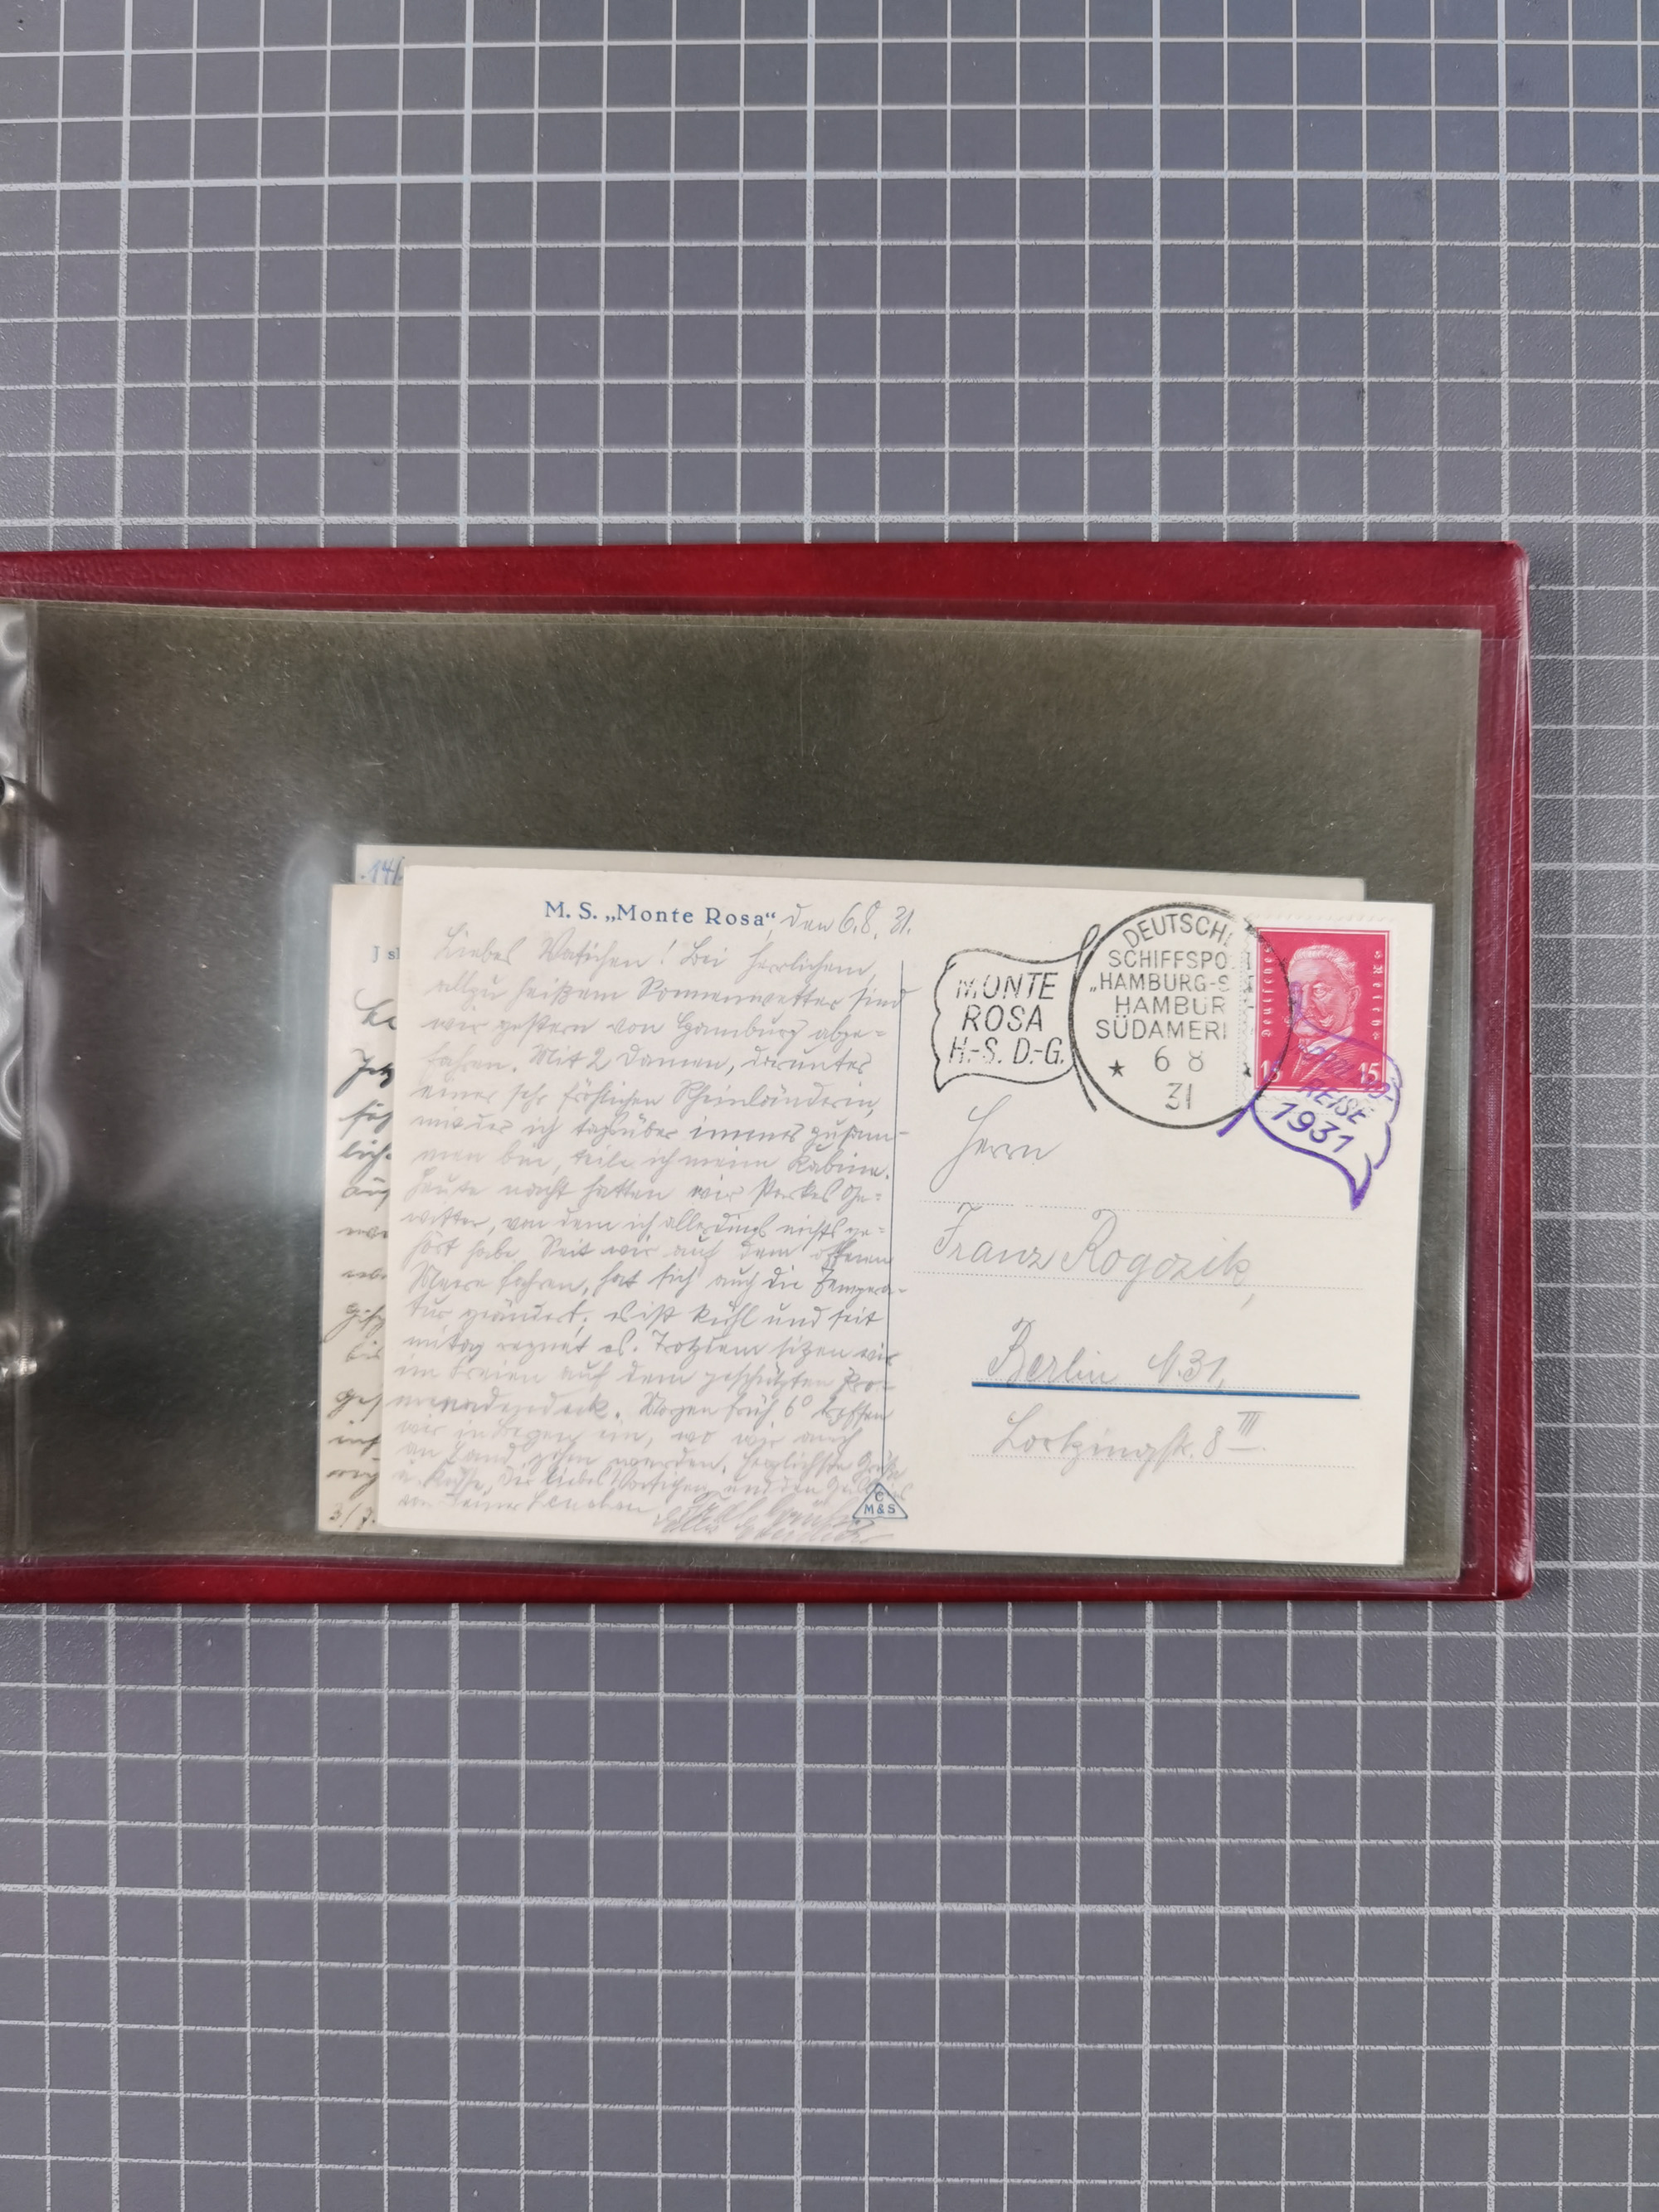 14/
J sl
M. S. „Monte Rosa“, den 6.8.31.
Liebes Vatichen! Bei herrlichem,
allzu heißem Sonnenwetter sind
wir gestern von Hamburg abge-
fahren. Mit 2 Damen, darunter
einer sehr fröhlichen Rheinländerin,
mit der ich tagsüber immer zusam-
men bin, teile ich meine Kabine.
Heute nacht hatten wir starkes Ge-
witter, von dem ich allerdings nichts ge-
hört habe. Seit wir auf dem offenen
Meere fahren, hat sich auch die Tempera-
tur geändert; es ist kühl und seit
mittag regnet es. Trotzdem sitzen wir
im Freien auf dem geschützten Pro-
menadendeck. Morgen früh 6° treffen
wir in Bergen ein, wo wir auch
an Land gehen werden. Herzlichste Grüße
u. Küsse, Dir liebes Vatichen und den
von Deiner Lenchen
C
M&S
MONTE
ROSA
H.-S. D.-G.
DEUTSCHE
SCHIFFSPO
„HAMBURG-S
HAMBUR
SÜDAMERI
★ 6 8
31
Deutsches Reich
15 15
REISE
1931
Herrn
Franz Rogozik,
Berlin N.31,
Lortzingstr. 8 III